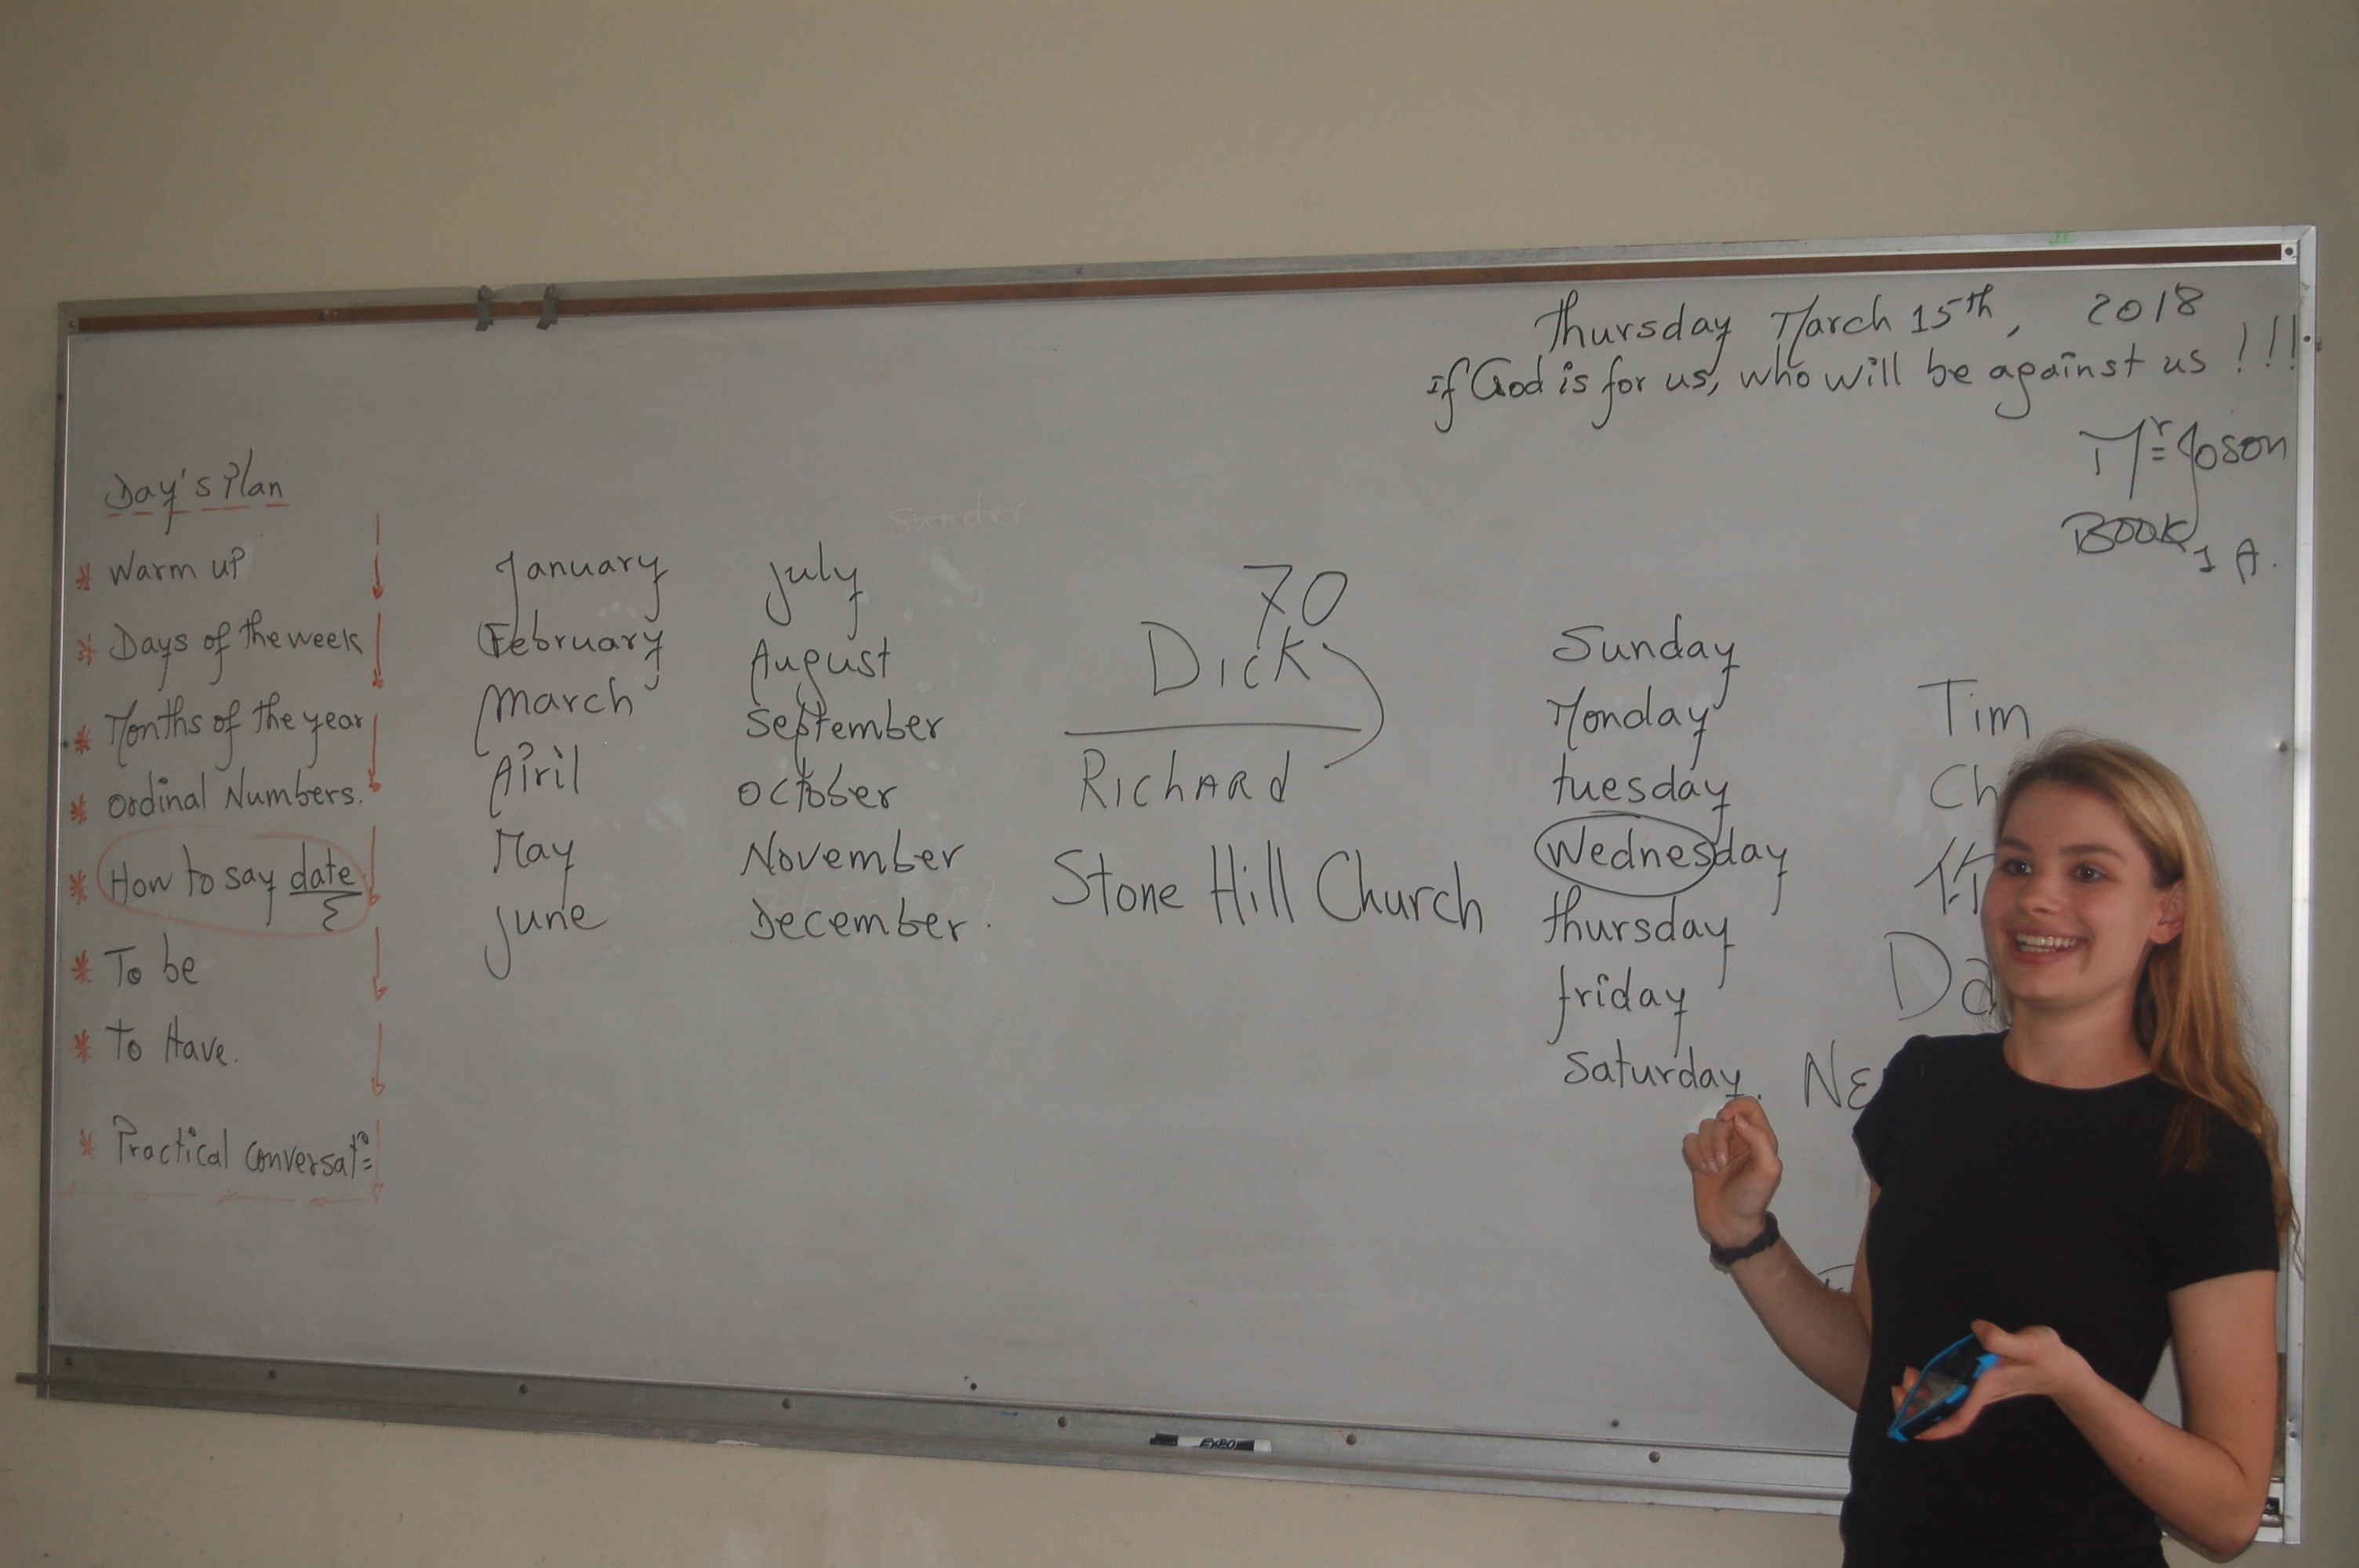 Thursday March 15th, 2018
if God is for us, who will be against us !!!
Mr Joson
Book 1 A.
Day's Plan
* Warm up
* Days of the week
* Months of the year
* Ordinal Numbers.
* How to say date
* To be
* To Have.
* Practical conversat°
January
February
March
April
May
June
July
August
September
October
November
December.
70
Dick
Richard
Stone Hill Church
Sunday
Monday
tuesday
Wednesday
thursday
friday
saturday.
Tim
EXPO